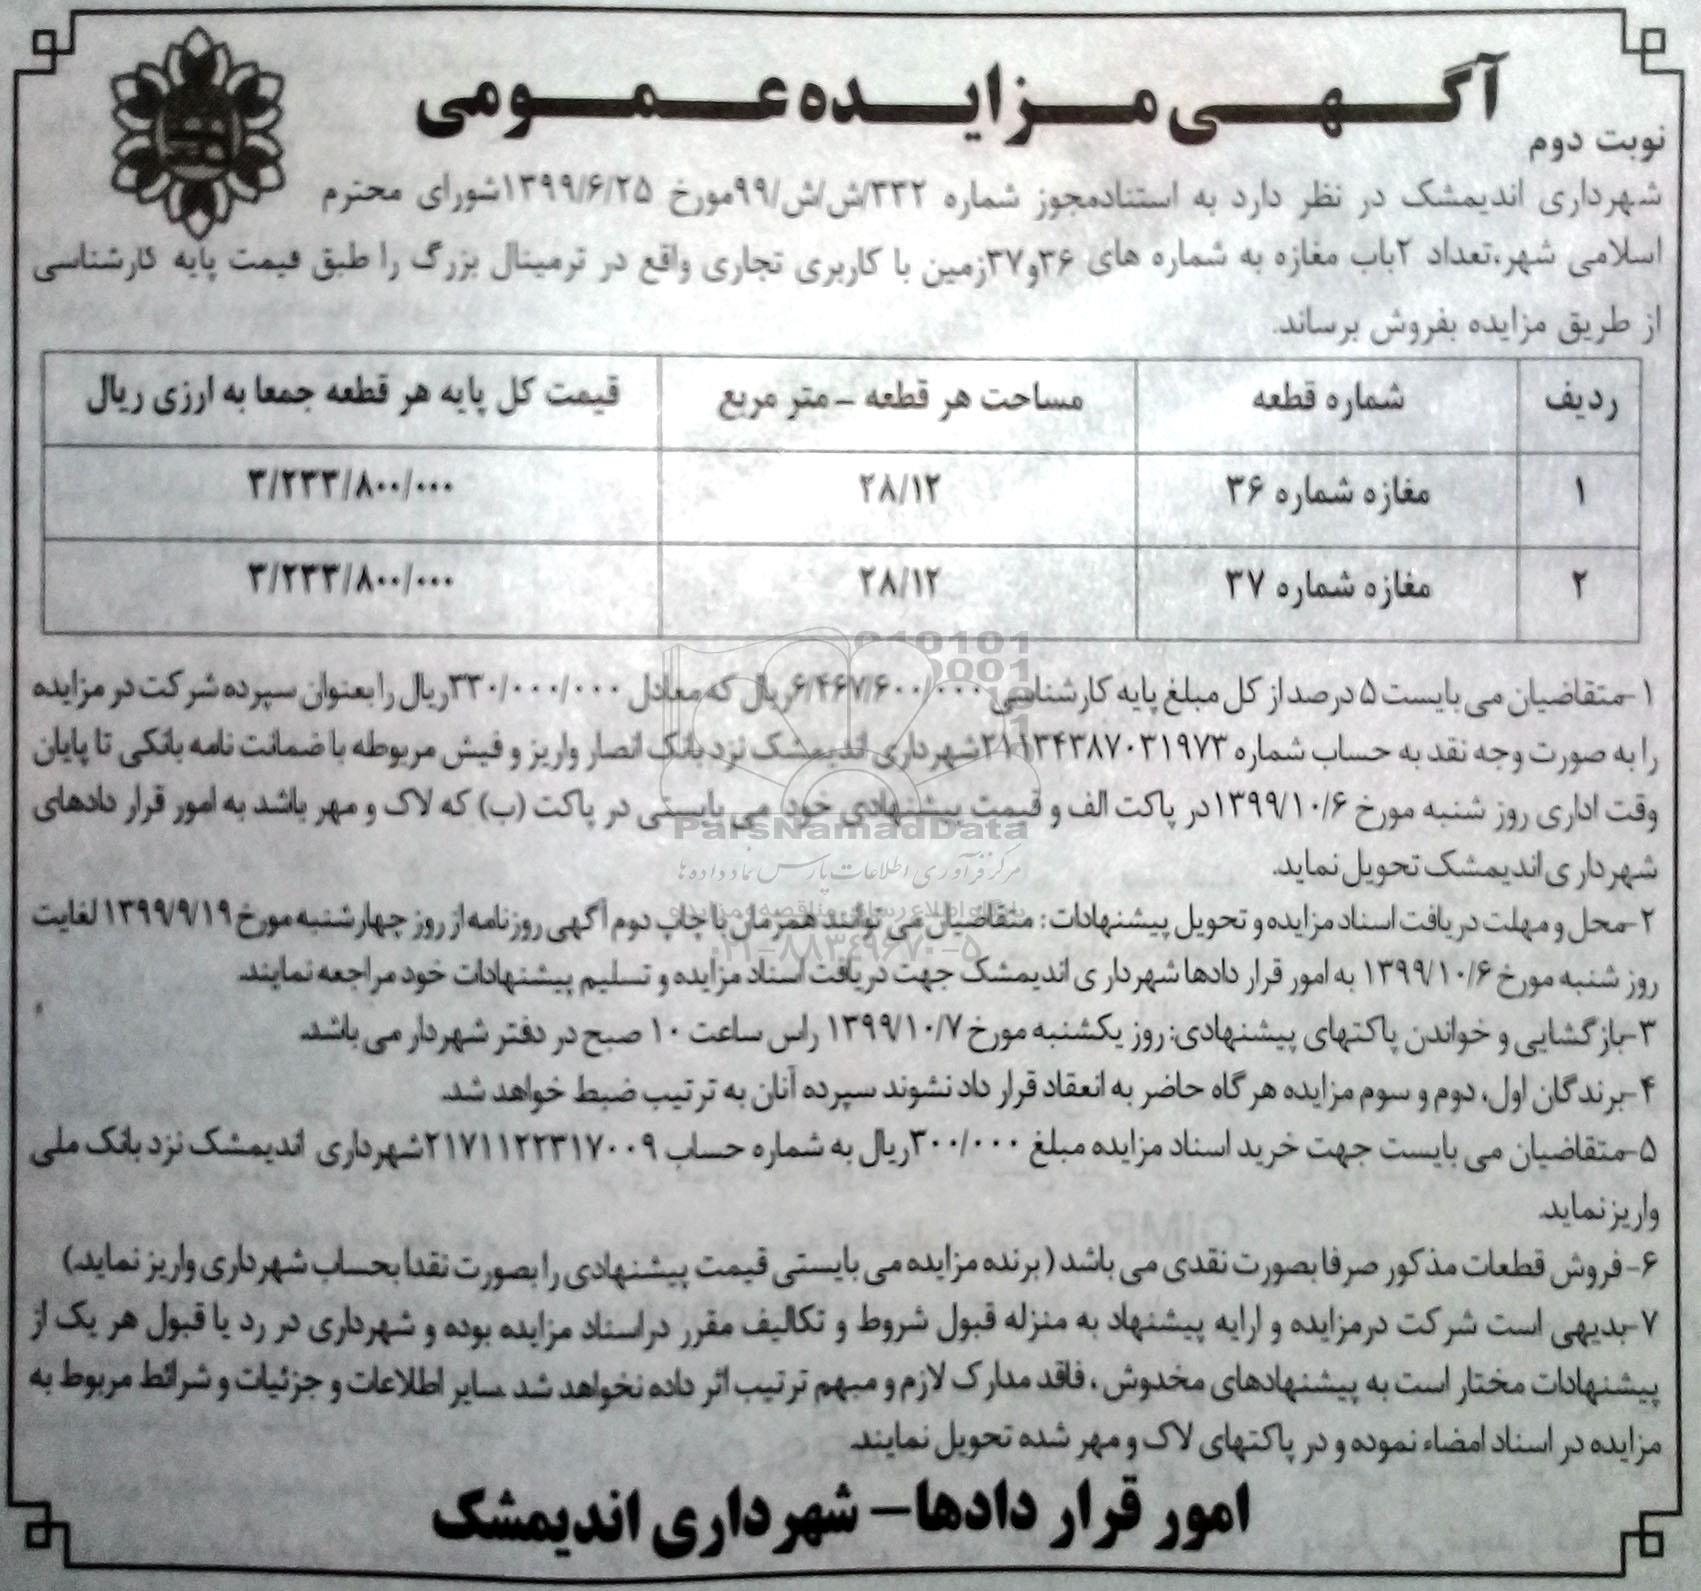 آگهی مزایده عمومی
نوبت دوم
شهرداری اندیمشک در نظر دارد به استنادمجوز شماره ۳۳۲/ش/ش/۹۹مورخ ۱۳۹۹/۶/۲۵شورای محترم
اسلامی شهر،تعداد ۲باب مغازه به شماره های ۳۶و۳۷زمین با کاربری تجاری واقع در ترمینال بزرگ را طبق قیمت پایه کارشناسی
از طریق مزایده بفروش برساند.
ردیف شماره قطعه مساحت هر قطعه – متر مربع قیمت کل پایه هر قطعه جمعا به ارزی ریال
۱ مغازه شماره ۳۶ ۲۸/۱۲ ۳/۲۳۳/۸۰۰/۰۰۰
۲ مغازه شماره ۳۷ ۲۸/۱۲ ۳/۲۳۳/۸۰۰/۰۰۰
۱-متقاضیان می بایست ۵ درصد از کل مبلغ پایه کارشناسی ۶/۴۶۷/۶۰۰/۰۰۰ریال که معادل ۳۳۰/۰۰۰/۰۰۰ریال را بعنوان سپرده شرکت در مزایده
را به صورت وجه نقد به حساب شماره ۲۱۱۳۴۳۸۷۰۳۱۹۷۳شهرداری اندیمشک نزد بانک انصار واریز و فیش مربوطه با ضمانت نامه بانکی تا پایان
وقت اداری روز شنبه مورخ ۱۳۹۹/۱۰/۶در پاکت الف و قیمت پیشنهادی خود می بایستی در پاکت (ب) که لاک و مهر باشد به امور قرار دادهای
شهرداری اندیمشک تحویل نماید.
۲-محل و مهلت دریافت اسناد مزایده و تحویل پیشنهادات: متقاضیان می توانند همزمان با چاپ دوم آگهی روزنامه از روز چهارشنبه مورخ ۱۳۹۹/۹/۱۹ لغایت
روز شنبه مورخ ۱۳۹۹/۱۰/۶ به امور قرار دادها شهرداری اندیمشک جهت دریافت اسناد مزایده و تسلیم پیشنهادات خود مراجعه نمایند.
۳-بازگشایی و خواندن پاکتهای پیشنهادی: روز یکشنبه مورخ ۱۳۹۹/۱۰/۷ راس ساعت ۱۰ صبح در دفتر شهردار می باشد.
۴-برندگان اول، دوم و سوم مزایده هر گاه حاضر به انعقاد قرار داد نشوند سپرده آنان به ترتیب ضبط خواهد شد.
۵-متقاضیان می بایست جهت خرید اسناد مزایده مبلغ ۳۰۰/۰۰۰ریال به شماره حساب ۲۱۷۱۱۲۲۳۱۷۰۰۹شهرداری اندیمشک نزد بانک ملی
واریز نماید.
۶- فروش قطعات مذکور صرفا بصورت نقدی می باشد ( برنده مزایده می بایستی قیمت پیشنهادی را بصورت نقدا بحساب شهرداری واریز نماید.)
۷-بدیهی است شرکت درمزایده و ارایه پیشنهاد به منزله قبول شروط و تکالیف مقرر دراسناد مزایده بوده و شهرداری در رد یا قبول هر یک از
پیشنهادات مختار است به پیشنهادهای مخدوش ، فاقد مدارک لازم و مبهم ترتیب اثر داده نخواهد شد .سایر اطلاعات و جزئیات و شرائط مربوط به
مزایده در اسناد امضاء نموده و در پاکتهای لاک و مهر شده تحویل نمایند.
امور قرار دادها– شهرداری اندیمشک
ParsNamadData
مرکز فرآوری اطلاعات پارس نماد داده ها
۰۲۱-۸۸۳۴۹۶۷۰-۵